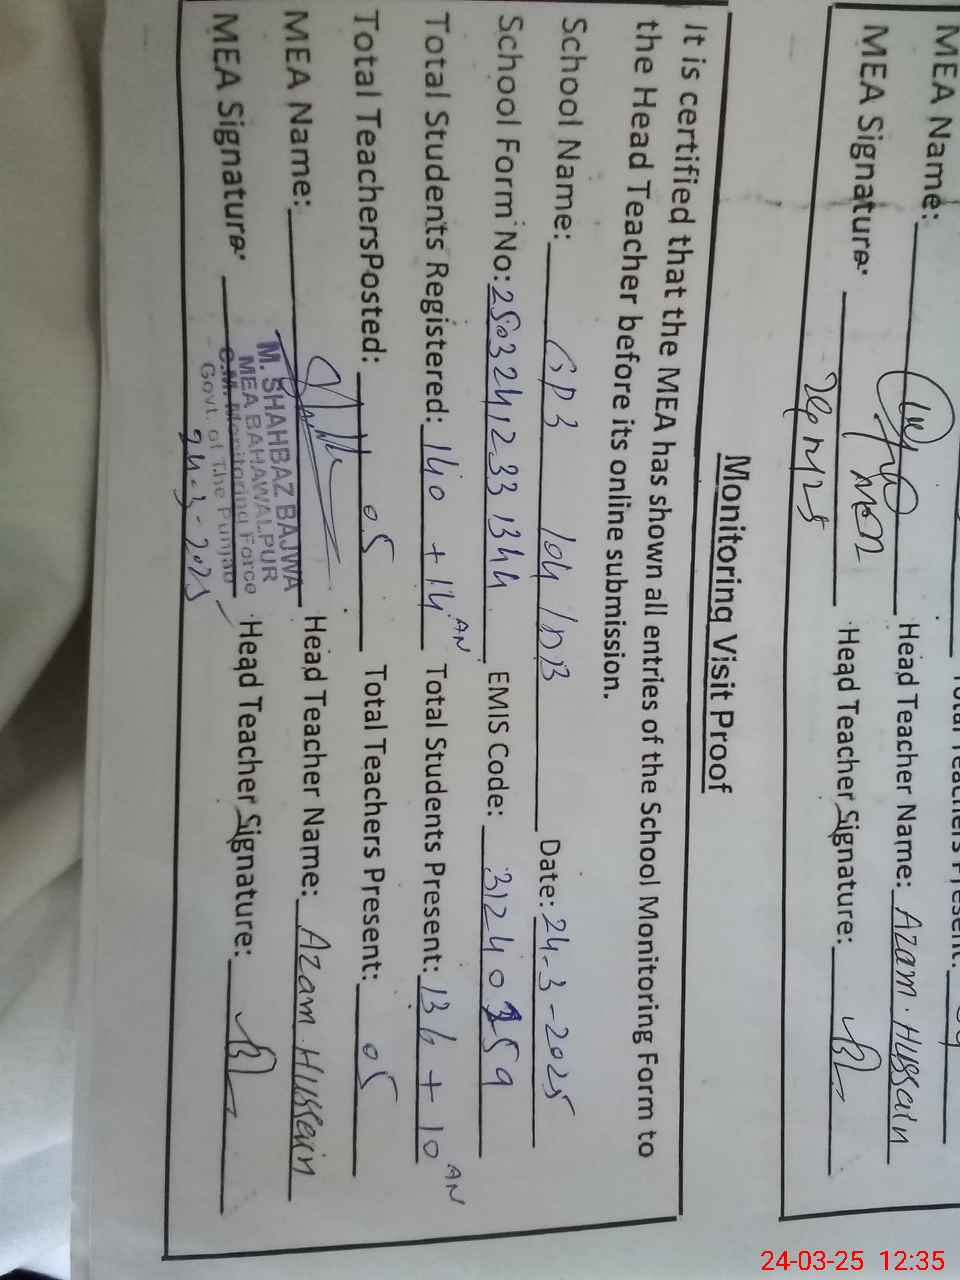 MEA Name:
Head Teacher Name: Azam Hussain
MEA Signature:
Head Teacher Signature:
Monitoring Visit Proof
It is certified that the MEA has shown all entries of the School Monitoring Form to
the Head Teacher before its online submission.
School Name: GPS 104 /DB Date: 24-3-2025
School Form No: 2503241233 1344 EMIS Code:
Total Students Registered: 140 + 14 AN Total Students Present: 136 + 10 AN
Total TeachersPosted: 05 Total Teachers Present: 05
MEA Name: Head Teacher Name: Azam Hussain
MEA Signature: Head Teacher Signature:
M. SHAHBAZ BAJWA
MEA BAHAWALPUR
C.M. Monitoring Force
Govt. of The Punjab
24-3-2025
24-03-25 12:35